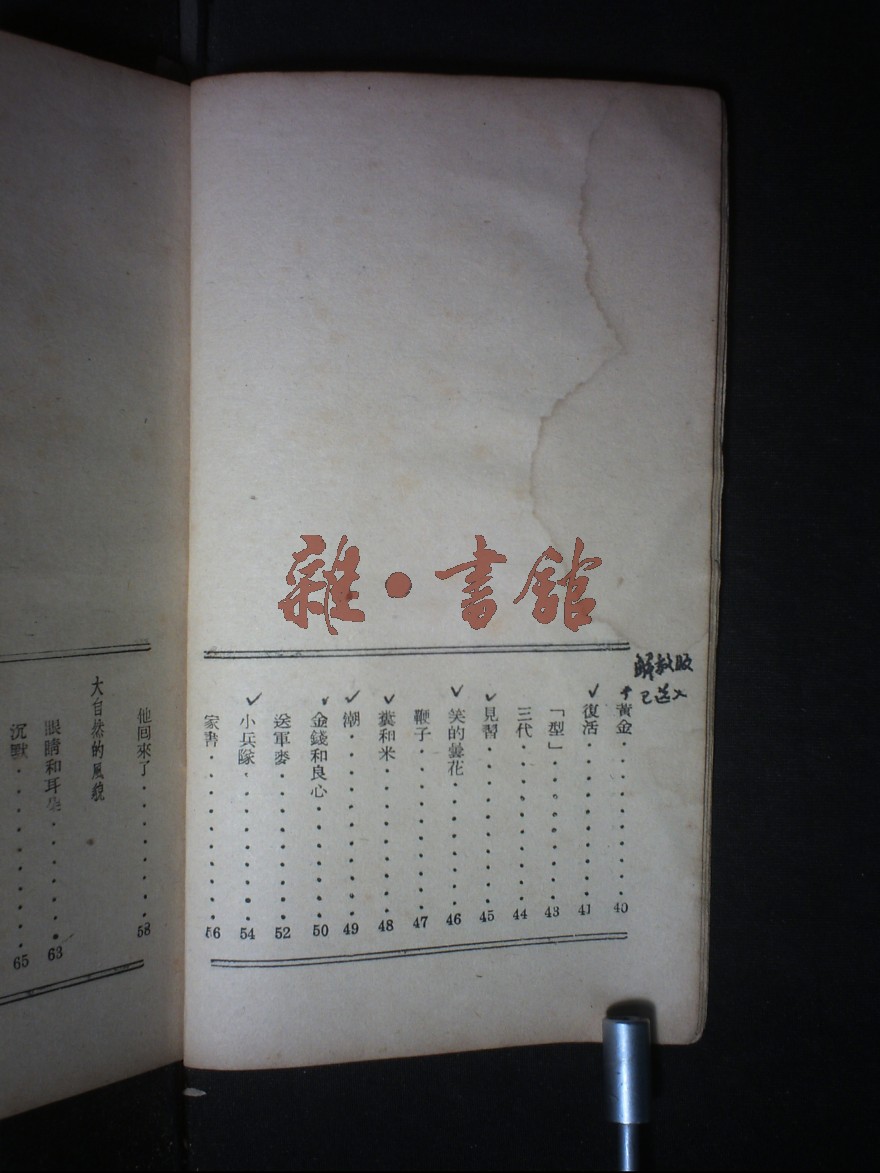 雜·書館
解救版
已送
黃金 40
復活 41
「型」 43
三代 44
見習 45
笑的曇花 46
鞭子 47
糞和米 48
潮 49
金錢和良心 50
送軍麥 52
小兵隊 54
家書 56
他囘來了 58
大自然的風貌
眼睛和耳朵 63
沉默 65